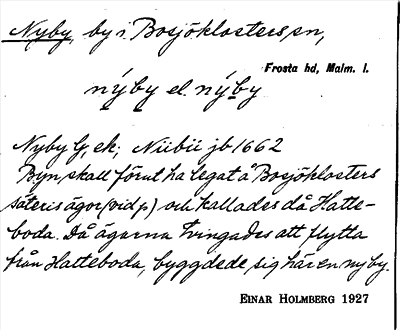 Nyby, by i Bosjöklosters sn,
Frosta hd, Malm. l.
nýby el. nýby
Nyby G, ek; Niibii jb 1662
Byn skall förut ha legat å Bosjöklosters
säteris ägor och kallades då Hatte-
boda. Då ägarna tvingades att flytta
från Hatteboda, byggdede sig här en ny by.
EINAR HOLMBERG 1927